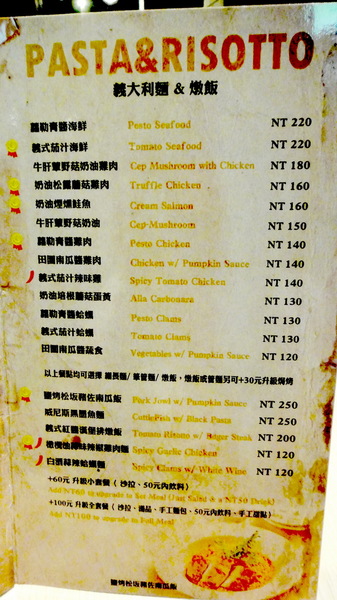 PASTA&RISOTTO
義大利麵 & 燉飯
羅勒青醬海鮮 Pesto Seafood NT 220
義式茄汁海鮮 Tomato Seafood NT 220
牛肝蕈野菇奶油雞肉 Cep Mushroom with Chicken NT 180
奶油松露蘑菇雞肉 Truffle Chicken NT 160
奶油煙燻鮭魚 Cream Salmon NT 160
牛肝蕈野菇奶油 Cep-Mushroom NT 150
羅勒青醬雞肉 Pesto Chicken NT 140
田園南瓜醬雞肉 Chicken w/ Pumpkin Sauce NT 140
義式茄汁辣味雞 Spicy Tomato Chicken NT 140
奶油培根蘑菇蛋黃 Alla Carbonara NT 130
羅勒青醬蛤蠣 Pesto Clams NT 130
義式茄汁蛤蠣 Tomato Clams NT 130
田園南瓜醬蔬食 Vegetables w/ Pumpkin Sauce NT 120
以上餐點均可選擇 細長麵/ 筆管麵/ 燉飯，燉飯或筆管麵另可+30元升級焗烤
鹽烤松坂豬佐南瓜飯 Pork Jowl w/ Pumpkin Sauce NT 250
威尼斯風墨魚麵 CuttleFish w/ Black Pasta NT 250
義式紅醬漢堡排燉飯 Tomato Risotto w/ Burger Steak NT 200
橄欖油蒜味辣椒雞肉麵 Spicy Garlic Chicken NT 120
白酒蒜辣蛤蠣麵 Spicy Clams w/ White Wine NT 120
+60元 升級小套餐 ( 沙拉、50元內飲料)
Add NT60 to upgrade to Set Meal (Just Salad & a NT50 Drink)
+100元 升級全套餐 ( 沙拉、湯品、手工麵包、50元內飲料、手工甜點)
Add NT100 to upgrade to Full Meal
鹽烤松坂豬佐南瓜飯